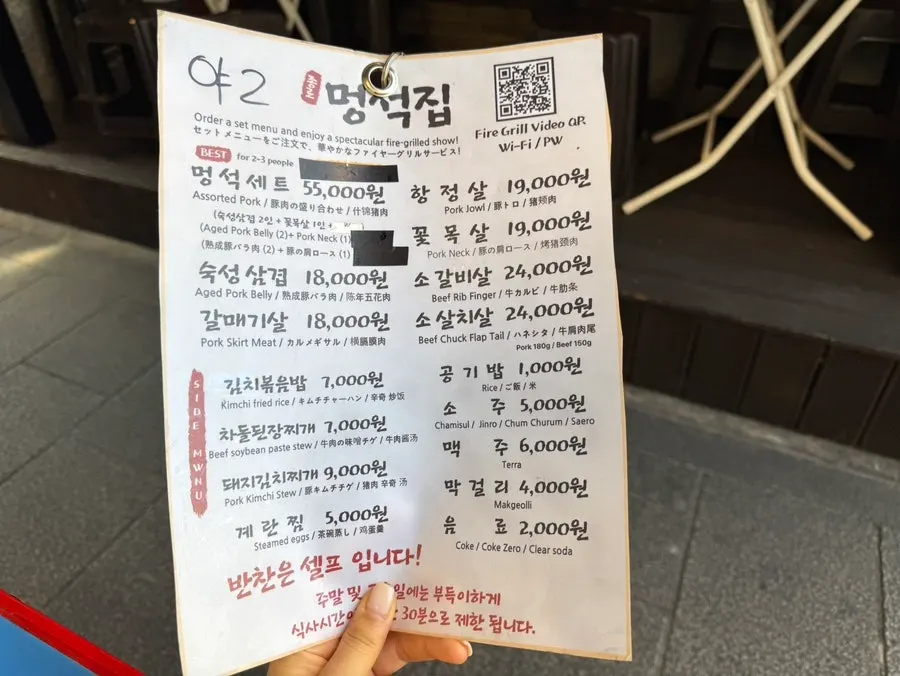 야2
종로
멍석집
Order a set menu and enjoy a spectacular fire-grilled show!
セットメニューをご注文で、華やかなファイヤーグリルサービス!
Fire Grill Video QR.
Wi-Fi / PW
BEST for 2-3 people
멍석세트 55,000원
Assorted Pork / 豚肉の盛り合わせ / 什锦猪肉
(숙성삼겹 2인 + 꽃목살 1인
(Aged Pork Belly (2)+ Pork Neck (1)
(熟成豚バラ肉 (2) + 豚の肩ロース (1)
숙성삼겹 18,000원
Aged Pork Belly / 熟成豚バラ肉 / 陈年五花肉
갈매기살 18,000원
Pork Skirt Meat / カルメギサル / 横膈膜肉
항정살 19,000원
Pork Jowl / 豚トロ / 猪颊肉
꽃목살 19,000원
Pork Neck / 豚の肩ロース / 烤猪颈肉
소갈비살 24,000원
Beef Rib Finger / 牛カルビ / 牛肋条
소살치살 24,000원
Beef Chuck Flap Tail / ハネシタ / 牛肩肉尾
Pork 180g / Beef 150g
SIDE MWNU
김치볶음밥 7,000원
Kimchi fried rice / キムチチャーハン / 辛奇 炒饭
차돌된장찌개 7,000원
Beef soybean paste stew / 牛肉の味噌チゲ / 牛肉酱汤
돼지김치찌개 9,000원
Pork Kimchi Stew / 豚キムチチゲ / 猪肉 辛奇 汤
계란찜 5,000원
Steamed eggs / 茶碗蒸し / 鸡蛋羹
공기밥 1,000원
Rice / ご飯 / 米
소주 5,000원
Chamisul / Jinro / Chum Churum / Saero
맥주 6,000원
Terra
막걸리 4,000원
Makgeolli
음료 2,000원
Coke / Coke Zero / Clear soda
반찬은 셀프 입니다!
주말 및 일에는 부득이하게
식사시간이 30분으로 제한 됩니다.